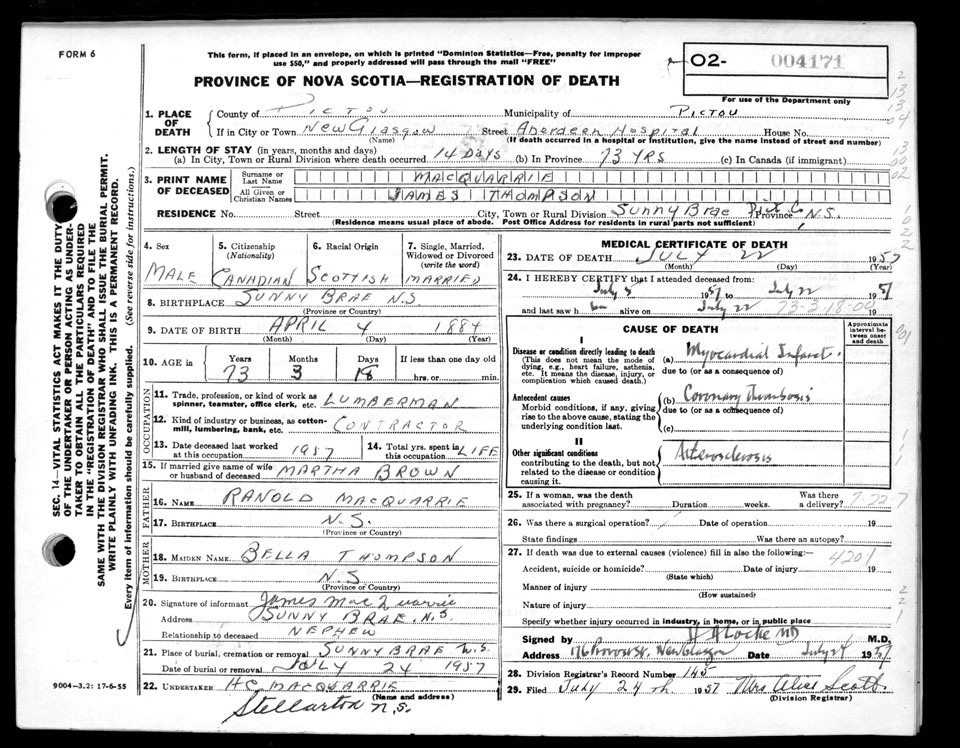 FORM 6
This form, if placed in an envelope, on which is printed "Dominion Statistics—Free, penalty for improper
use $50," and properly addressed will pass through the mail "FREE"
PROVINCE OF NOVA SCOTIA—REGISTRATION OF DEATH
O2- 004171
For use of the Department only
1. PLACE OF DEATH
County of PICTOU Municipality of PICTOU
If in City or Town New Glasgow Street Aberdeen Hospital House No.
(Name) (If death occurred in a hospital or institution, give the name instead of street and number)
2. LENGTH OF STAY (in years, months and days)
(a) In City, Town or Rural Division where death occurred 14 Days (b) In Province 73 YRS (c) In Canada (if immigrant)
3. PRINT NAME OF DECEASED
Surname or Last Name MACQUARRIE
All Given or Christian Names JAMES THOMPSON
RESIDENCE No. Street City, Town or Rural Division Sunny Brae Pict. Co Province N.S.
(Residence means usual place of abode. Post Office Address for residents in rural parts not sufficient)
4. Sex
MALE
5. Citizenship (Nationality)
CANADIAN
6. Racial Origin
SCOTTISH
7. Single, Married, Widowed or Divorced (write the word)
MARRIED
8. BIRTHPLACE SUNNY BRAE N.S.
(Province or Country)
9. DATE OF BIRTH APRIL 4 1884
(Month) (Day) (Year)
10. AGE in
Years Months Days If less than one day
73 3 18 hrs. or min.
OCCUPATION
11. Trade, profession, or kind of work as spinner, teamster, office clerk, etc. LUMBERMAN
12. Kind of industry or business, as cotton-mill, lumbering, bank, etc. CONTRACTOR
13. Date deceased last worked at this occupation 1957
14. Total yrs. spent in this occupation LIFE
15. If married give name of wife or husband of deceased MARTHA BROWN
FATHER
16. NAME RANOLD MACQUARRIE
17. BIRTHPLACE N.S.
(Province or Country)
MOTHER
18. MAIDEN NAME BELLA THOMPSON
19. BIRTHPLACE N.S
(Province or Country)
20. Signature of informant James MacQuarrie
Address SUNNY BRAE, N.S.
Relationship to deceased NEPHEW
21. Place of burial, cremation or removal SUNNYBRAE N.S.
Date of burial or removal JULY 24 1957
22. UNDERTAKER H C MACQUARRIE
(Name and address)
Stellarton N.S.
9004-3.2: 17-6-55
MEDICAL CERTIFICATE OF DEATH
23. DATE OF DEATH JULY 22 1957
(Month) (Day) (Year)
24. I HEREBY CERTIFY that I attended deceased from:
July 8 1957 to July 22 1957
and last saw h im alive on July 22 19
73-3-18-00
CAUSE OF DEATH
Approximate interval between onset and death
I
Disease or condition directly leading to death
(This does not mean the mode of dying, e.g., heart failure, asthenia, etc. It means the disease, injury, or complication which caused death.)
(a) Myocardial Infarct.
due to (or as a consequence of)
Antecedent causes
Morbid conditions, if any, giving rise to the above cause, stating the underlying condition last.
(b) Coronary Thrombosis
due to (or as a consequence of)
(c)
II
Other significant conditions
contributing to the death, but not related to the disease or condition causing it.
Arterosclerosis
25. If a woman, was the death associated with pregnancy? Duration weeks. Was there a delivery?
7-22-7
26. Was there a surgical operation? Date of operation 19
State findings Was there an autopsy?
27. If death was due to external causes (violence) fill in also the following:—
4201
Accident, suicide or homicide? Date of injury 19
(State which)
Manner of injury
(How sustained)
Nature of injury
Specify whether injury occurred in industry, in home, or in public place
Signed by H A Locke MD M.D.
Address 176 Provost St. New Glasgow Date July 24 1957
28. Division Registrar's Record Number 145
29. Filed July 24 th. 1957 Mrs Alice Scott
(Division Registrar)
SEC. 14—VITAL STATISTICS ACT MAKES IT THE DUTY
OF THE UNDERTAKER OR PERSON ACTING AS UNDER-
TAKER TO OBTAIN ALL THE PARTICULARS REQUIRED
IN THE "REGISTRATION OF DEATH" AND TO FILE THE
SAME WITH THE DIVISION REGISTRAR WHO SHALL ISSUE THE BURIAL PERMIT.
WRITE PLAINLY WITH UNFADING INK. THIS IS A PERMANENT RECORD.
Every item of information should be carefully supplied. (See reverse side for instructions.)